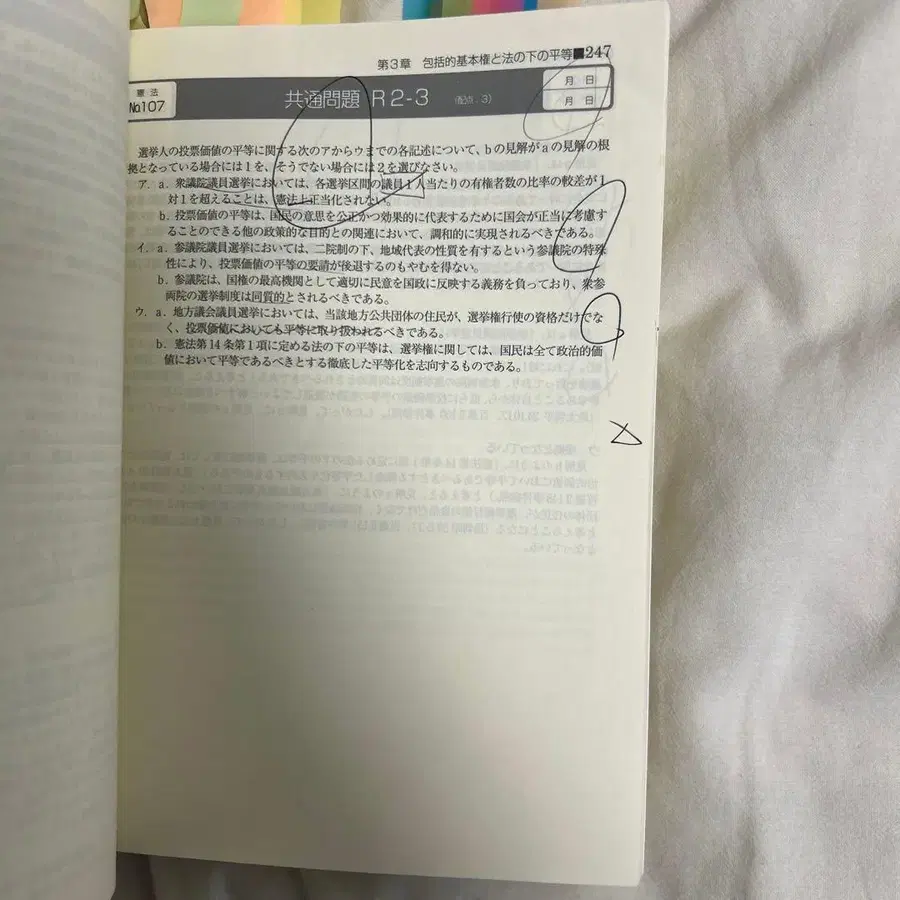 第3章 包括的基本権と法の下の平等■247
憲法
No.107
共通問題 R2-3 (配点:3)
月 日
月 日
選挙人の投票価値の平等に関する次のアからウまでの各記述について、bの見解がaの見解の根
拠となっている場合には1を、そうでない場合には2を選びなさい。
ア. a. 衆議院議員選挙においては、各選挙区間の議員1人当たりの有権者数の比率の較差が1
対1を超えることは、憲法上正当化されない。
b. 投票価値の平等は、国民の意思を公正かつ効果的に代表するために国会が正当に考慮す
ることのできる他の政策的な目的との関連において、調和的に実現されるべきである。
イ. a. 参議院議員選挙においては、二院制の下、地域代表の性質を有するという参議院の特殊
性により、投票価値の平等の要請が後退するのもやむを得ない。
b. 参議院は、国権の最高機関として適切に民意を国政に反映する義務を負っており、衆参
両院の選挙制度は同質的とされるべきである。
ウ. a. 地方議会議員選挙においては、当該地方公共団体の住民が、選挙権行使の資格だけでな
く、投票価値においても平等に取り扱われるべきである。
b. 憲法第14条第1項に定める法の下の平等は、選挙権に関しては、国民は全て政治的価
値において平等であるべきとする徹底した平等化を志向するものである。